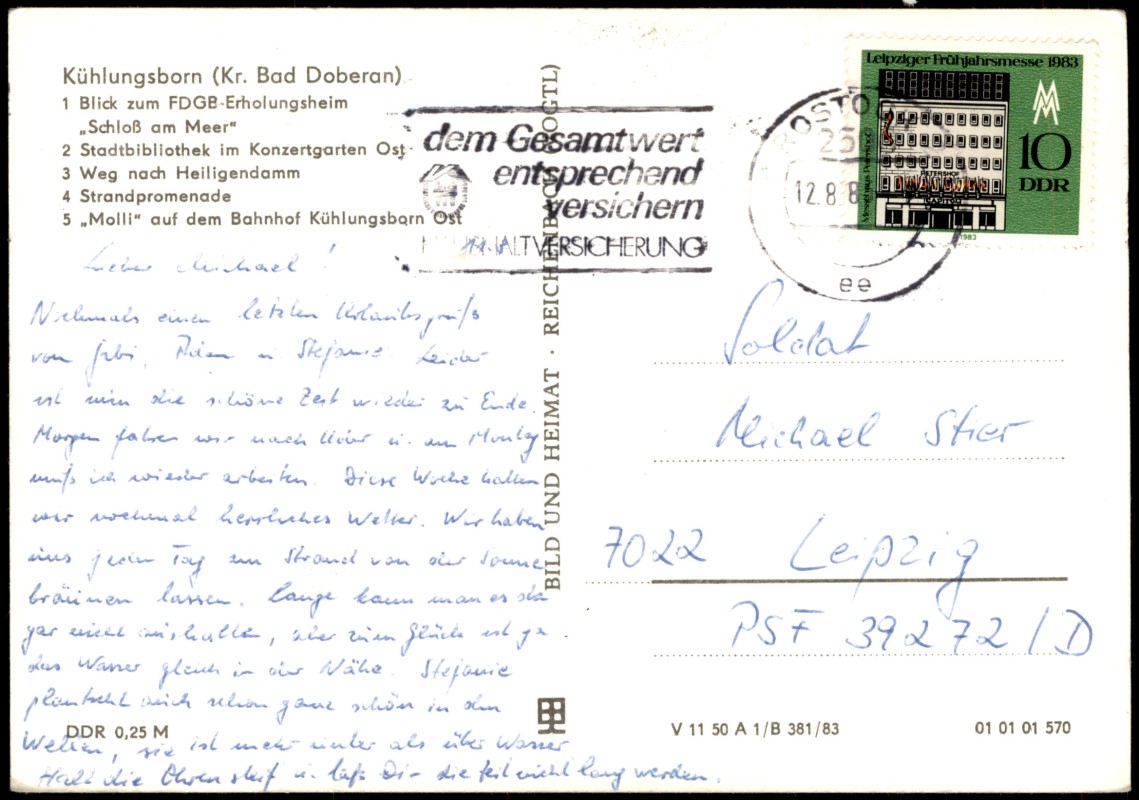 Kühlungsborn (Kr. Bad Doberan)
1 Blick zum FDGB-Erholungsheim
„Schloß am Meer“
2 Stadtbibliothek im Konzertgarten Ost
3 Weg nach Heiligendamm
4 Strandpromenade
5 „Molli“ auf dem Bahnhof Kühlungsborn Ost
dem Gesamtwert
entsprechend
versichern
HAUSHALTVERSICHERUNG
ROSTOCK
25
12.8.8
ee
Leipziger Frühjahrsmesse 1983
Messehaus Petershof
PETERSHOF
CAPITOL
10
DDR
1983
Lieber Michael!
Nochmals einen letzten Urlaubsgruß
von Gabi, u. Stefanie. Leider
ist nun die schöne Zeit wieder zu Ende.
Morgen fahren wir nach u. am Montag
muß ich wieder arbeiten. Diese Woche hatten
wir nochmal herrliches Wetter. Wir haben
uns jeden Tag am Strand von der Sonne
bräunen lassen. Lange kann man es da
gar nicht aushalten, aber zum Glück ist ja
das Wasser gleich in der Nähe. Stefanie
plantscht auch schon ganz schön in den
Wellen, sie ist mehr unter als über Wasser
Halt die Ohren steif u. laß Dir die Zeit nicht lang werden.
BILD UND HEIMAT · REICHENBACH (VOGTL)
Soldat
Michael Stier
7022 Leipzig
PSF 39272/D
DDR 0,25 M
V 11 50 A 1/B 381/83
01 01 01 570